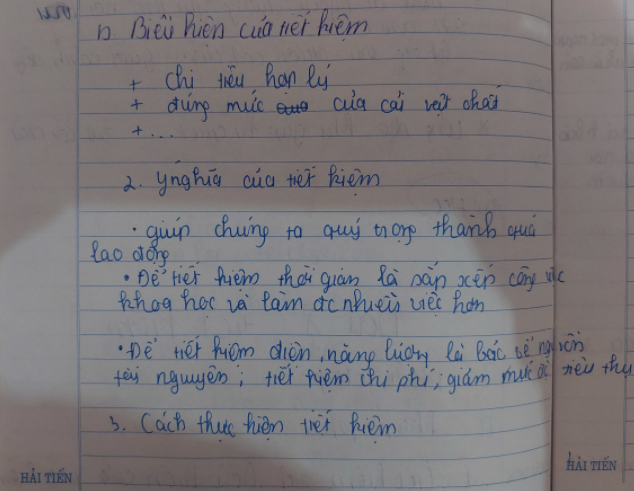 1) Biểu hiện của tiết kiệm
+ chi tiêu hợp lý
+ đúng mức của cải vật chất
+ ...
2. ý nghĩa của tiết kiệm
• giúp chúng ta quý trọng thành quả
lao động
• Để tiết kiệm thời gian là sắp xếp công việc
khoa học và làm đc nhiều việc hơn
• Để tiết kiệm điện, năng lượng là bảo vệ nguồn
tài nguyên; tiết kiệm chi phí; giảm mức độ tiêu thụ
3. Cách thực hiện tiết kiệm
HẢI TIẾN
HẢI TIẾN